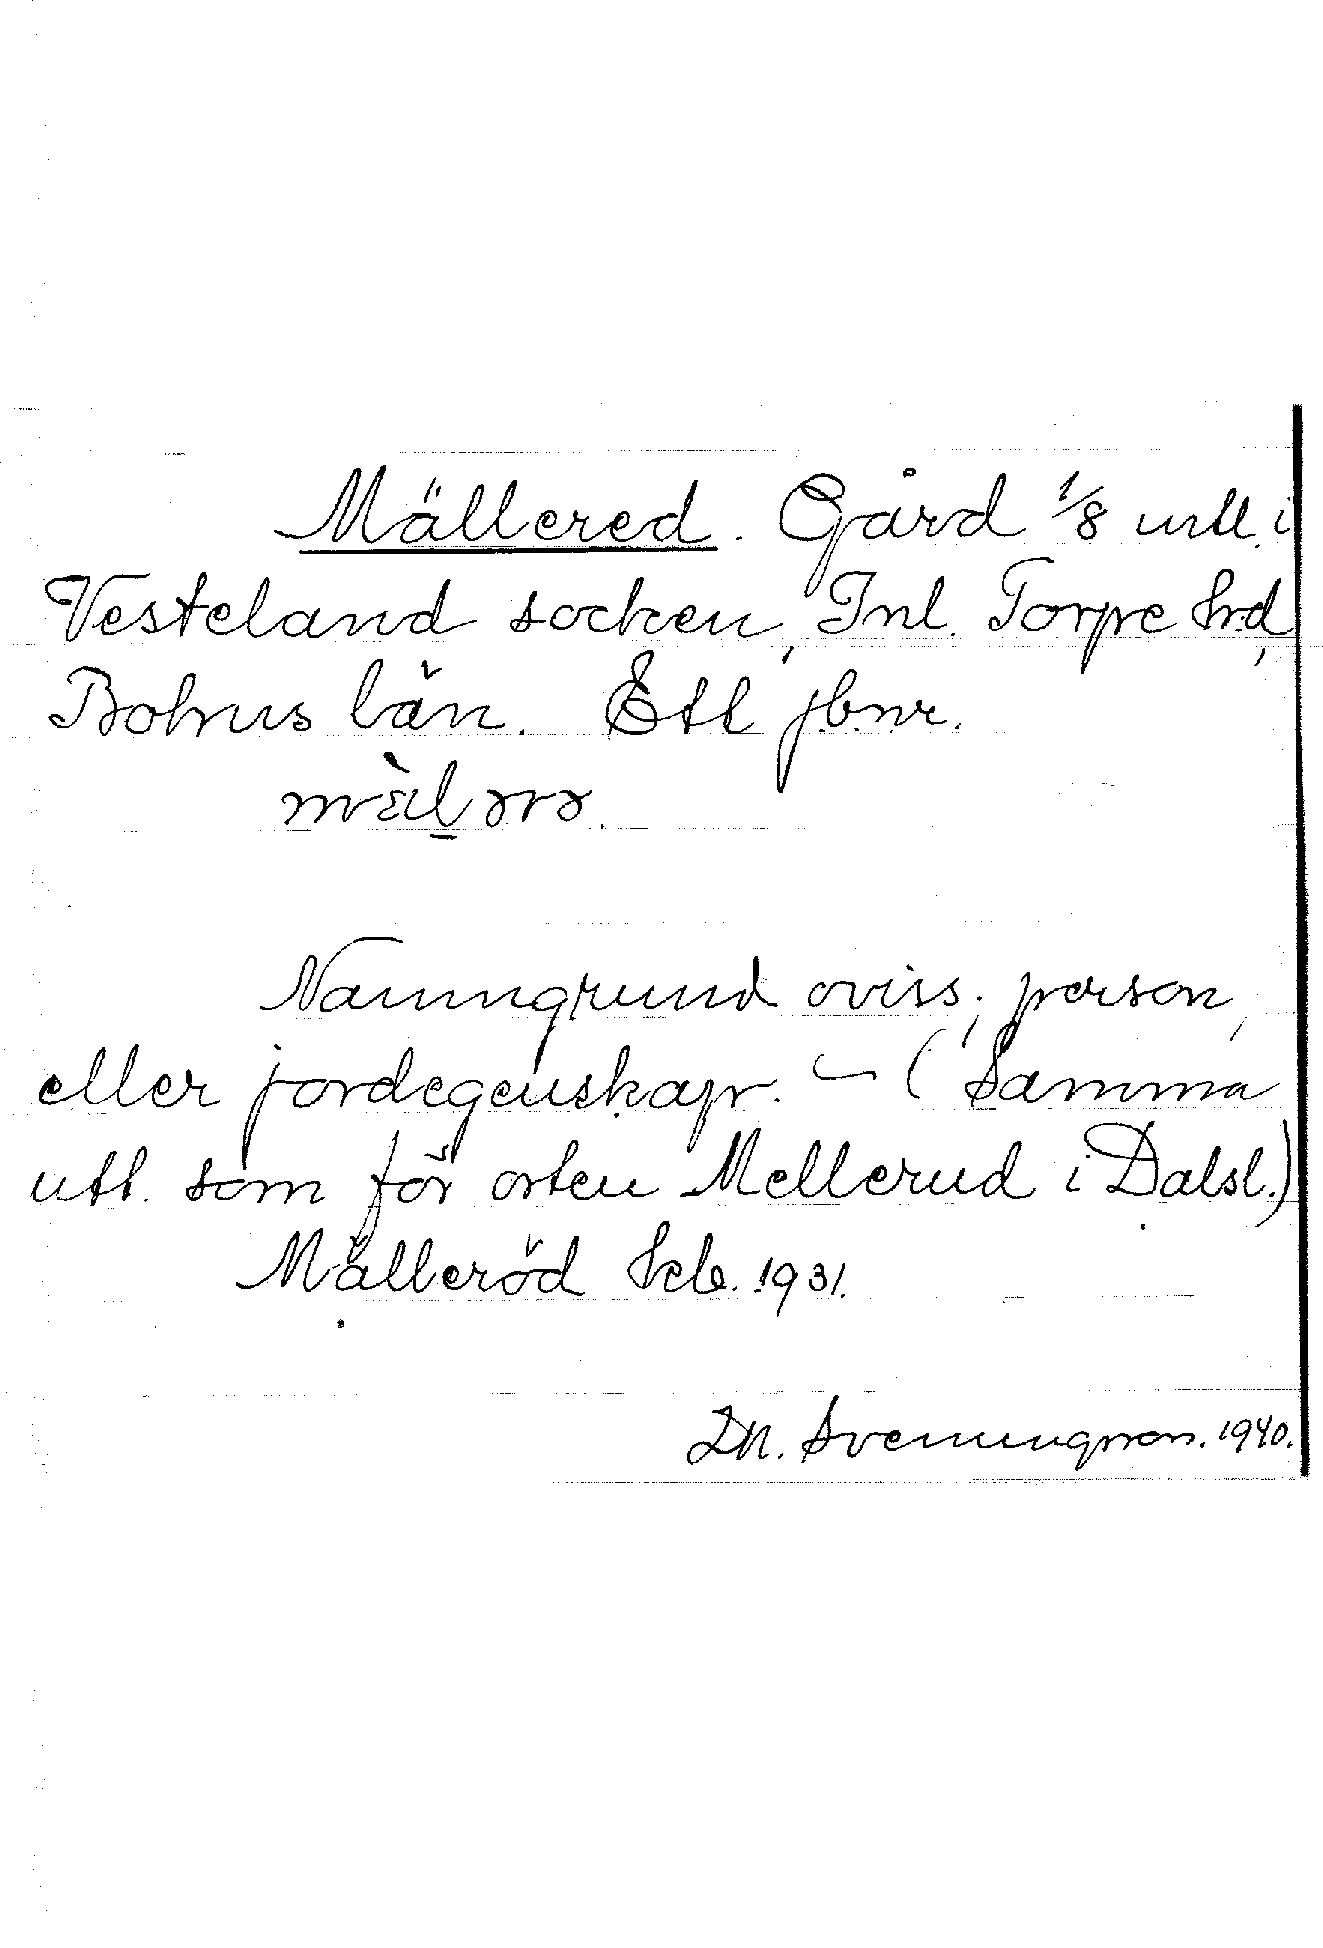 Mällered. Gård 1/8 mtl. i
Vesteland socken, Inl. Torpe hrd,
Bohus län. Ett jbnr.
mæ̀lərə.
Namngrund oviss; person,
eller jordegenskap. – (Samma
utt. som för orten Mellerud i Dalsl.)
Mälleröd Jrb. 1931.
D.N. Svenungsson. 1940.